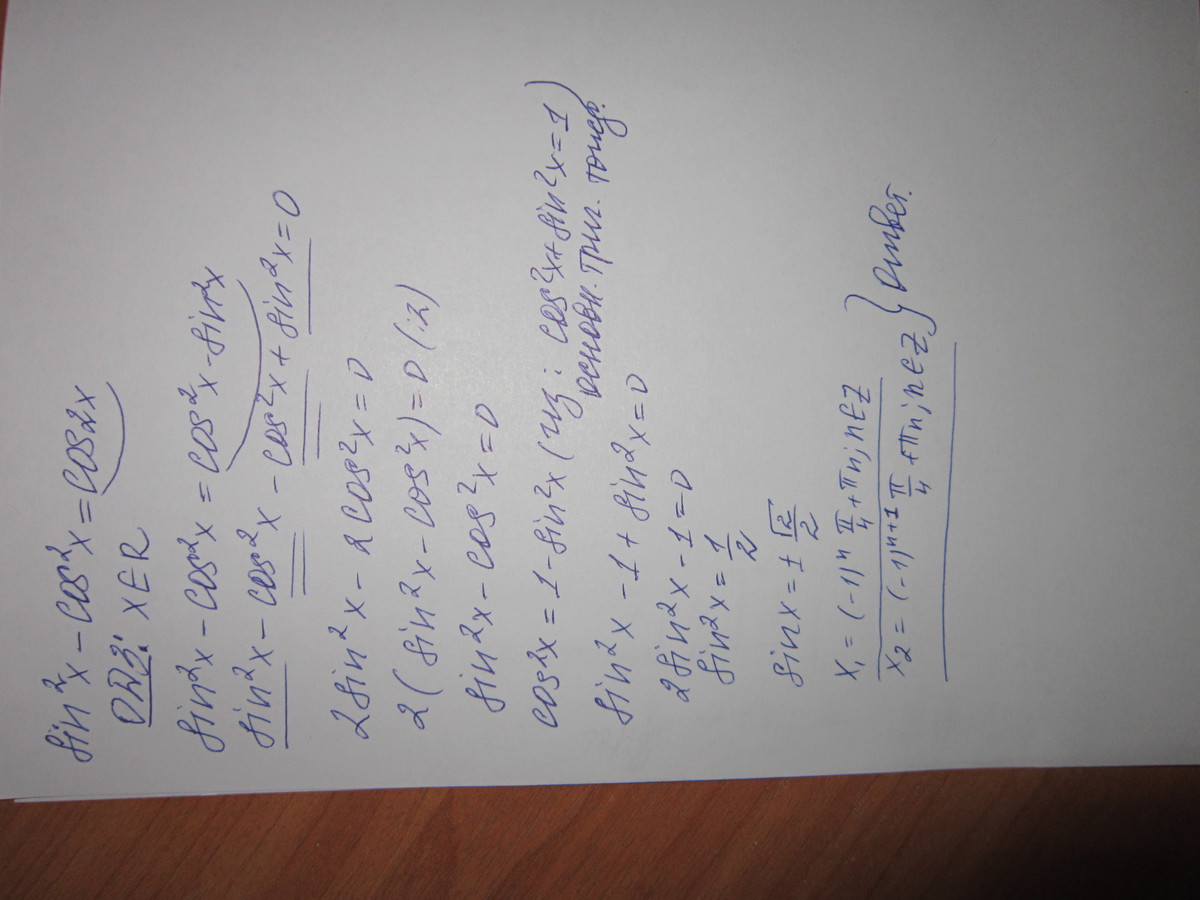 sin²x - cos²x = cos2x
ОДЗ: x∈R
sin²x - cos²x = cos²x - sin²x
sin²x - cos²x - cos²x + sin²x = 0
2sin²x - 2cos²x = 0
2(sin²x - cos²x) = 0 (:2)
sin²x - cos²x = 0
cos²x = 1 - sin²x (из: cos²x + sin²x = 1)
основн. триг. тожд.
sin²x - 1 + sin²x = 0
2sin²x - 1 = 0
sin²x = 1/2
sinx = ± √2/2
x₁ = (-1)ⁿ π/4 + πn; n∈Z
x₂ = (-1)ⁿ⁺¹ π/4 + πn; n∈Z } Ответ.